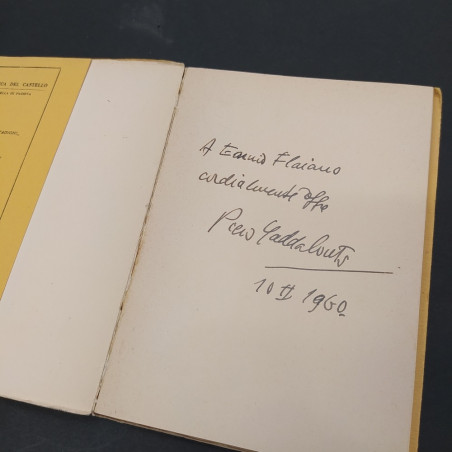 CA DEL CASTELLO
A Ennio Flaiano
cordialmente offre
Piero
10 II 1960